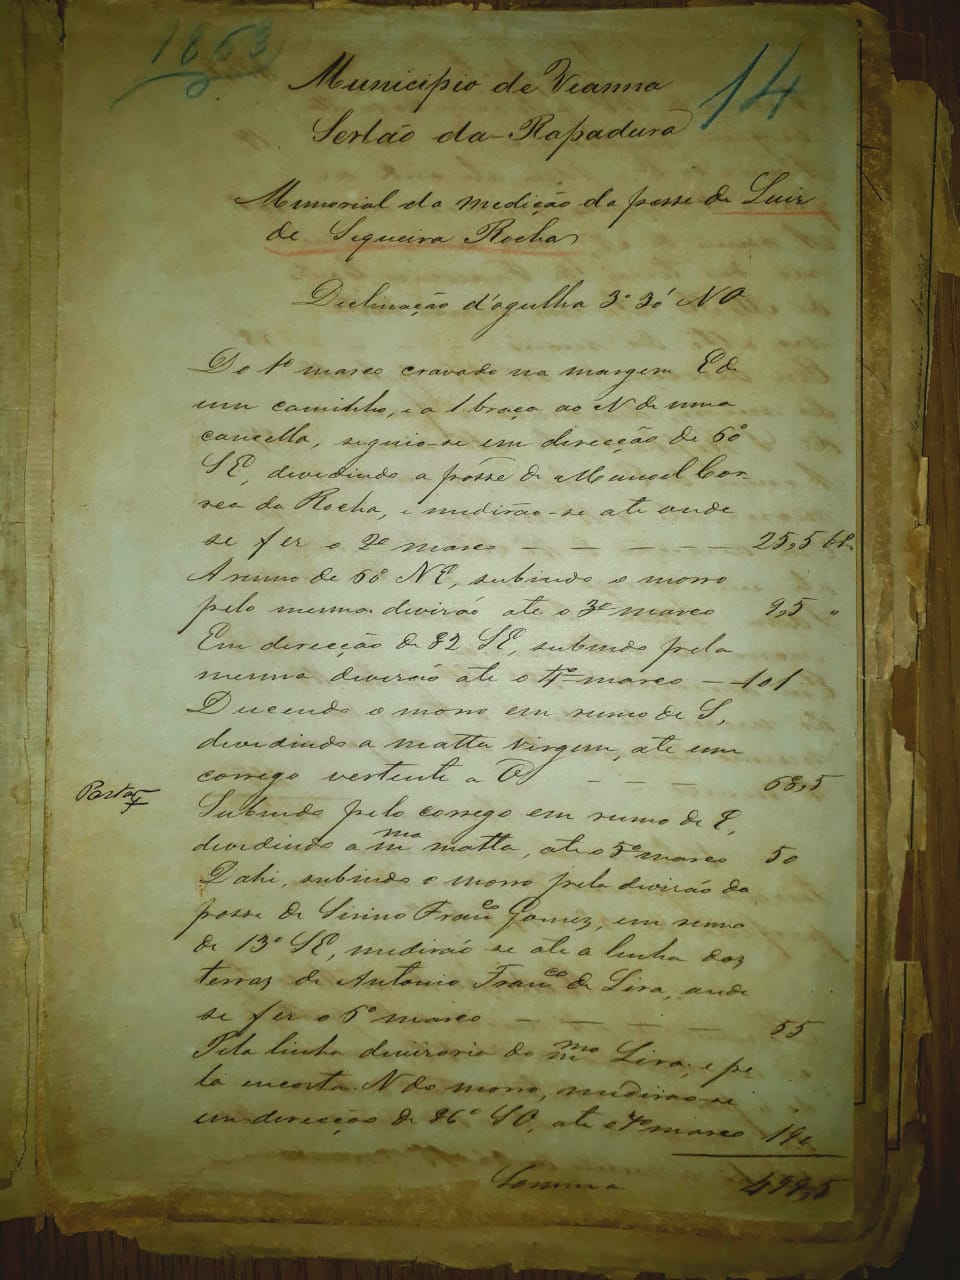 1863
14
Municipio de Vianna
Sertão da Rapadura
Memorial da medição da posse de Luiz
de Sequeira Rocha
Declinação d'agulha 3° 30' NO
Do 1º marco cravado na margem E de
um caminho, e a 1 braça ao N de uma
cancella, seguio-se em direcção de 60
SE, dividindo a posse de Manoel Cor-
rea da Rocha, e medirão-se até onde
se fez o 2º marco — — — — — 25,5 br.
A rumo de 60 NE, subindo o morro
pela mesma divizão até o 3º marco 9,5 "
Em direcção de 82 SE, subindo pela
mesma divizão até o 4º marco — 101
Decendo o morro em rumo de S,
dividindo a matta virgem, até um
corrego vertente a O — — — 68,5
Subindo pelo corrego em rumo de E,
dividindo a mma matta, até o 5º marco 50
Dahi, subindo o morro pela divizão da
posse de Sirino Franco Gomez, em rumo
de 13° SE, medirão-se até a linha das
terras de Antonio Franco de Lira, onde
se fez o 6º marco — — — — 55
Pela linha divizoria do mmo Lira, e pe-
la encosta N do morro, medirão-se
em direcção de 86° SO, até o 7º marco
Somma 499,5